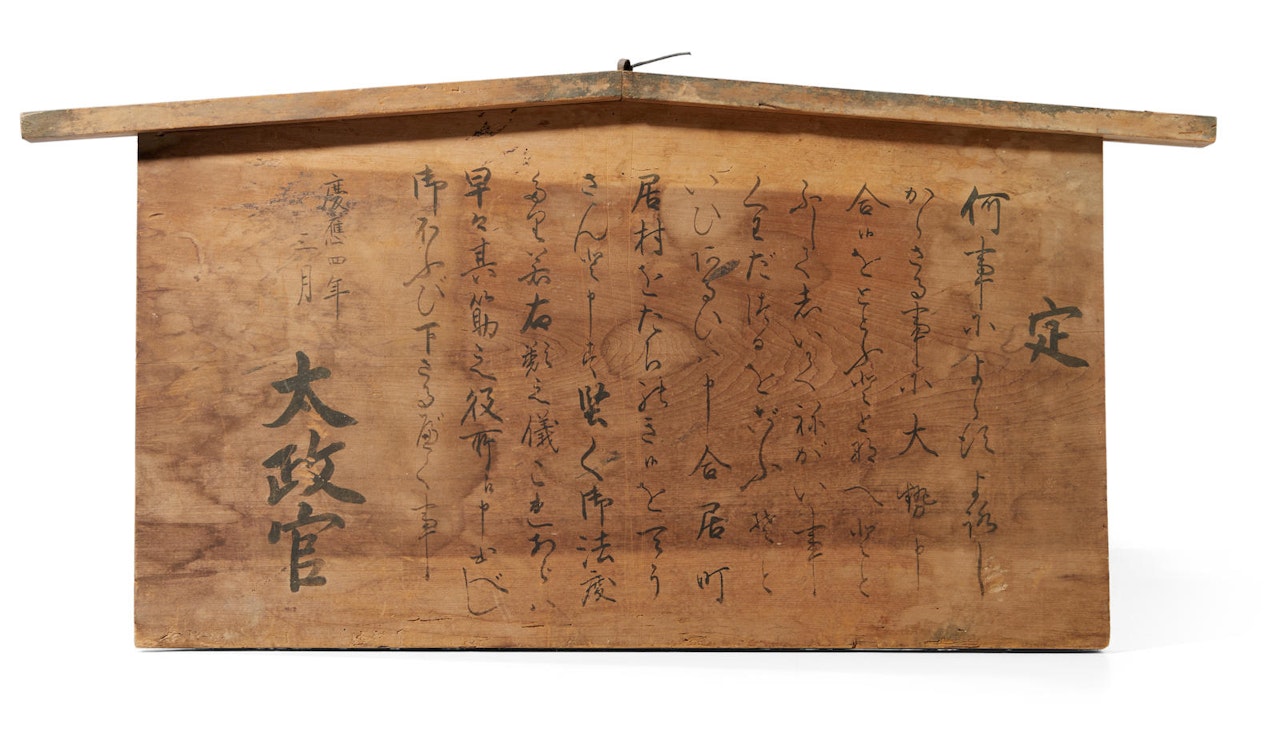 定
何事によらすよろし
からさる事に大勢申
合候をととふととなへとと
ふしてしいてねがい事
くわだつるをごふそと
いひあるひハ申合居町
居村をたちのき候をてう
さんと申す堅く御法度
たり若右類之儀これあらハ
早々其筋之役所へ申出べし
御ほふび下さるべく事
慶應四年
三月
太政官